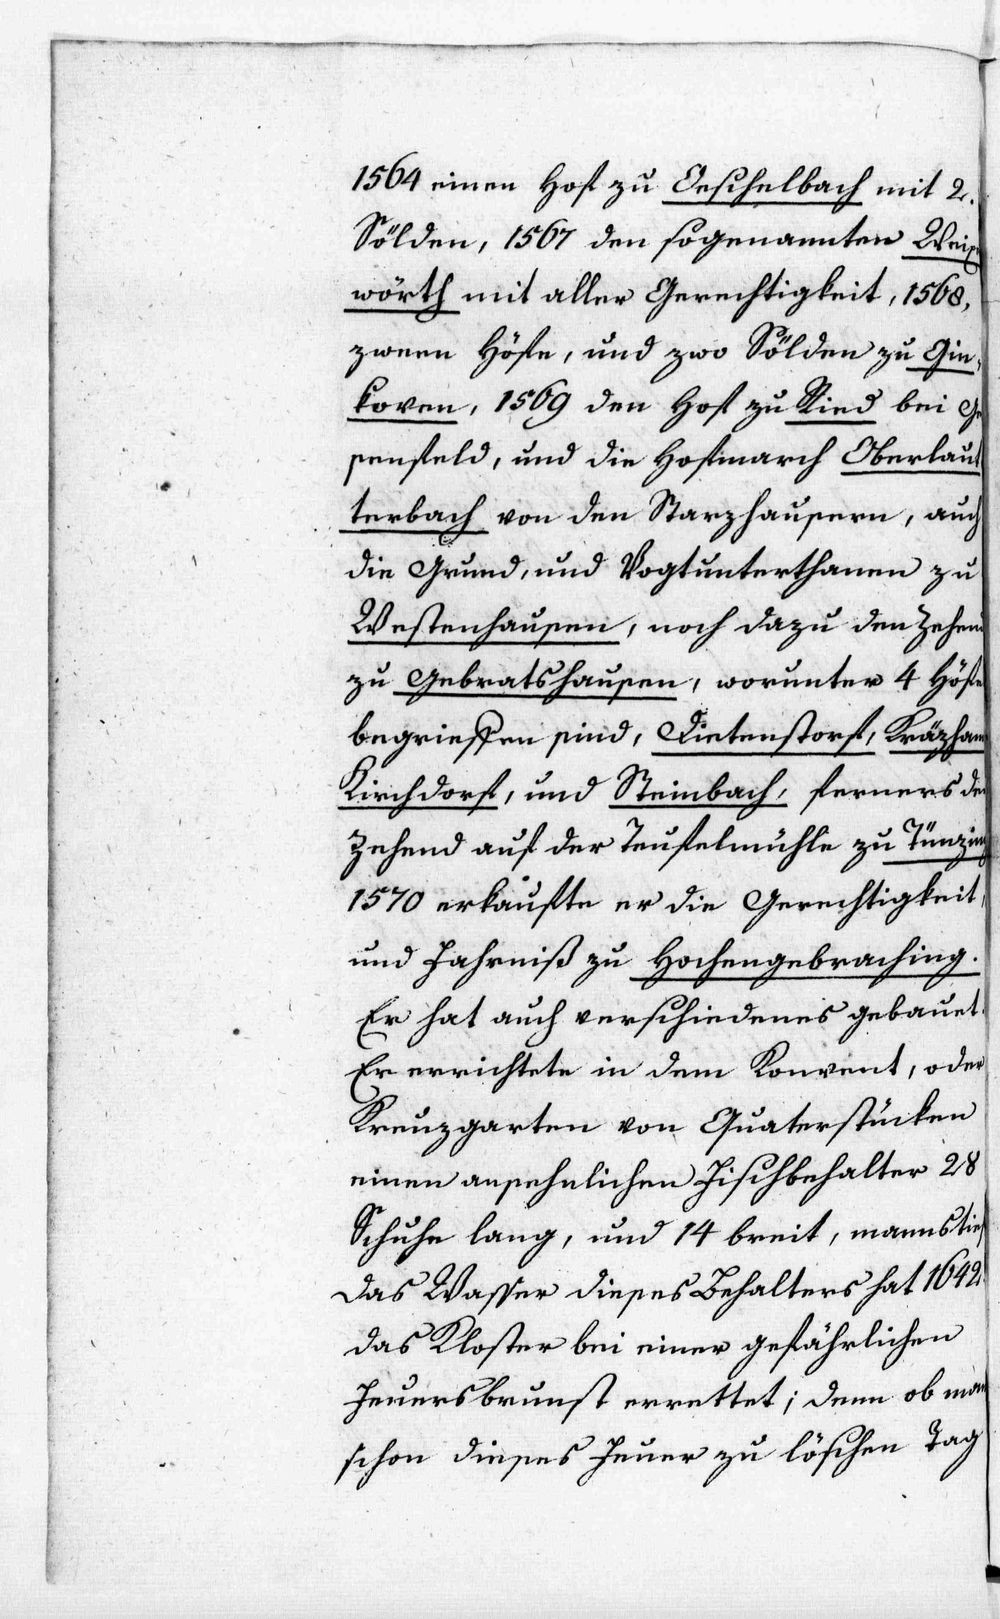 1564 einen Hof zu Oeschelbach mit 2.
Sölden, 1567 den sogenannten Weix
wörth mit aller Gerechtigkeit, 1568,
zween Höfe, und zwo Sölden zu Gin-
koven, 1569 den Hof zu Ried bei Ge
senfeld, und die Hofmarch Oberlaut
terbach von den Starzhausern, auch
die Grund, und Vogtunterthanen zu
Westenhausen, noch dazu den Zehend
zu Gebratshausen, worunter 4 Höfe
begrieffen sind, Dietenstorf, Kräzham
Kirchdorf, und Steinbach, ferners den
Zehend auf der Teufelmühle zu Tünzing
1570 erkaufte er die Gerechtigkeit,
und Fahrniß zu Hochengebraching.
Er hat auch verschiedenes gebauet.
Er errichtete in dem Konvent, oder
Kreuzgarten von Quaterstücken
einen ansehnlichen Fischbehalter 28
Schuhe lang, und 14 breit, mannstief
das Wasser dieses Behalters hat 1642.
das Kloster bei einer gefährlichen
Feuersbrunst errettet; denn ob man
schon dieses Feuer zu löschen Tag